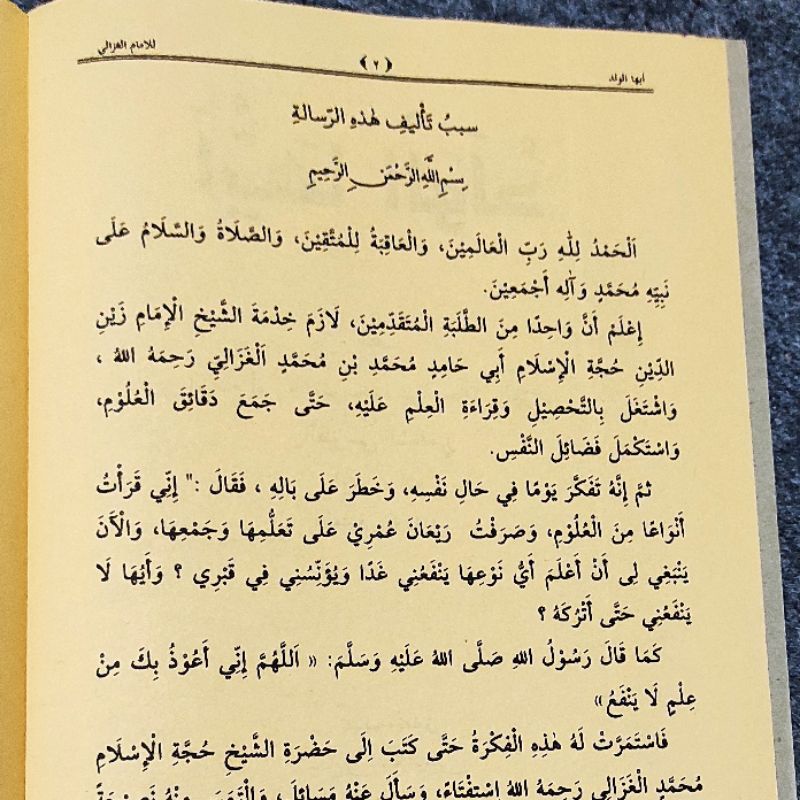 أيها الولد ﴿٢﴾ للامام الغزالي
سببُ تَأْليفِ هٰذِهِ الرّسالةِ
بِسْمِ اللّٰهِ الرَّحْمٰنِ الرَّحِيمِ
اَلْحَمْدُ لِلّٰهِ رَبِّ الْعَالَمِيْنَ، وَالْعَاقِبَةُ لِلْمُتَّقِيْنَ، وَالصَّلَاةُ وَالسَّلَامُ عَلَى
نَبِيِّهِ مُحَمَّدٍ وَآلِهِ أَجْمَعِيْنَ.
إِعْلَمْ أَنَّ وَاحِدًا مِنَ الطَّلَبَةِ الْمُتَقَدِّمِيْنَ، لَازَمَ خِدْمَةَ الشَّيْخِ الْإِمَامِ زَيْنِ
الدِّيْنِ حُجَّةِ الْإِسْلَامِ أَبِي حَامِدٍ مُحَمَّدِ بْنِ مُحَمَّدٍ اَلْغَزَالِيِّ رَحِمَهُ اللهُ ،
وَاشْتَغَلَ بِالتَّحْصِيْلِ وَقِرَاءَةِ الْعِلْمِ عَلَيْهِ، حَتَّى جَمَعَ دَقَائِقَ الْعُلُوْمِ،
وَاسْتَكْمَلَ فَضَائِلَ النَّفْسِ.
ثمَّ إِنَّهُ تَفَكَّرَ يَوْمًا فِي حَالِ نَفْسِهِ، وَخَطَرَ عَلَى بَالِهِ ، فَقَالَ :" إِنِّي قَرَأْتُ
أَنْوَاعًا مِنَ الْعُلُوْمِ، وَصَرَفْتُ رَيْعَانَ عُمْرِيْ عَلَى تَعَلُّمِهَا وَجَمْعِهَا، وَالْآنَ
يَنْبَغِي لِى أَنْ أَعْلَمَ أَيُّ نَوْعِهَا يَنْفَعُنِي غَدًا وَيُؤَنِّسُنِي فِي قَبْرِي ؟ وَأَيُّهَا لَا
يَنْفَعُنِي حَتَّى أَتْرُكَهُ ؟
كَمَا قَالَ رَسُوْلُ اللهِ صَلَّى اللهُ عَلَيْهِ وَسَلَّمَ: « اَللَّهُمَّ إِنِّي أَعُوْذُ بِكَ مِنْ
عِلْمٍ لَا يَنْفَعُ»
فَاسْتَمَرَّتْ لَهُ هٰذِهِ الْفِكْرَةُ حَتَّى كَتَبَ إِلَى حَضْرَةِ الشَّيْخِ حُجَّةِ الْإِسْلَامِ
مُحَمَّدٍ الْغَزَالِي رَحِمَهُ اللهُ اِسْتِفْتَاءً، وَسَأَلَ عَنْهُ مَسَائِلَ، وَالْتَمَسَ مِنْهُ نَصِيْحَةً